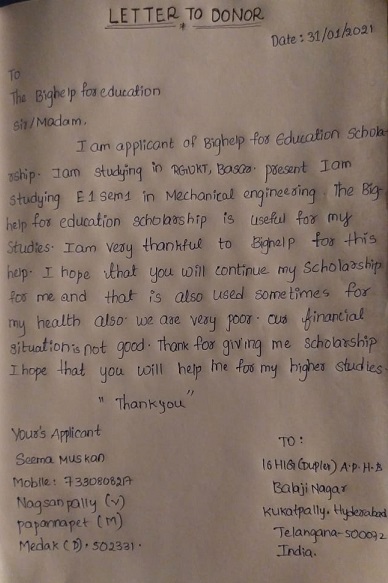 LETTER TO DONOR
Date: 31/01/2021
To
The Bighelp for education
Sir/Madam,
I am applicant of Bighelp for Education Schola-
rship. Iam studying in RGUKT, Basar. present Iam
studying E1 Sem1 in Mechanical engineering. The Big-
help for education scholarship is useful for my
Studies. Iam very thankful to Bighelp for this
help. I hope that you will continue my Scholarship
for me and that is also used sometimes for
my health also. we are very poor. our financial
situation is not good. Thank for giving me scholarship
I hope that you will help me for my higher studies.
" Thankyou"
Your's Applicant
Seema Muskan
Mobile:
Nagsanpally (V)
papannapet (M)
Medak (D). 502331.
TO:
16 HIG (Duplex) A.P.H.B
Babji Nagar
Kukatpally, Hyderabad
Telangana-500072
India.